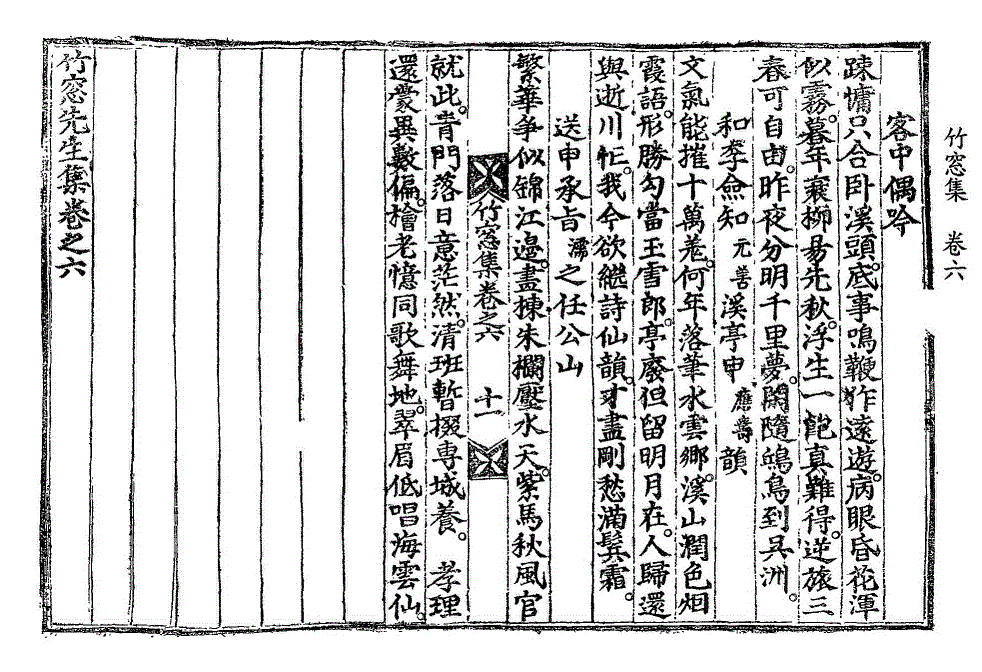 竹窓集 卷六
客中偶吟
踈慵只合卧溪頭。底事鳴鞭作遠遊。病眼昏花渾
似霧。暮年衰柳易先秋。浮生一飽眞難得。逆旅三
春可自由。昨夜分明千里夢。閑隨鴻鳥到吳洲。
和李僉知元善溪亭申應榘韻
文氣能摧十萬羌。何年落筆水雲鄕。溪山潤色烟
霞語。形勝勾當玉雪郞。亭廢但留明月在。人歸還
與逝川忙。我今欲繼詩仙韻。才盡剛愁滿鬂霜。
送申承旨濡之任公山
繁華爭似錦江邊。畫棟朱欄壓水天。紫馬秋風官
竹窓集卷之六 十一
就此。靑門落日意茫然。淸班暫掇專城養。孝理
還蒙異數偏。檜老憶同歌舞地。翠眉低唱海雲仙。
竹窓先生集卷之六